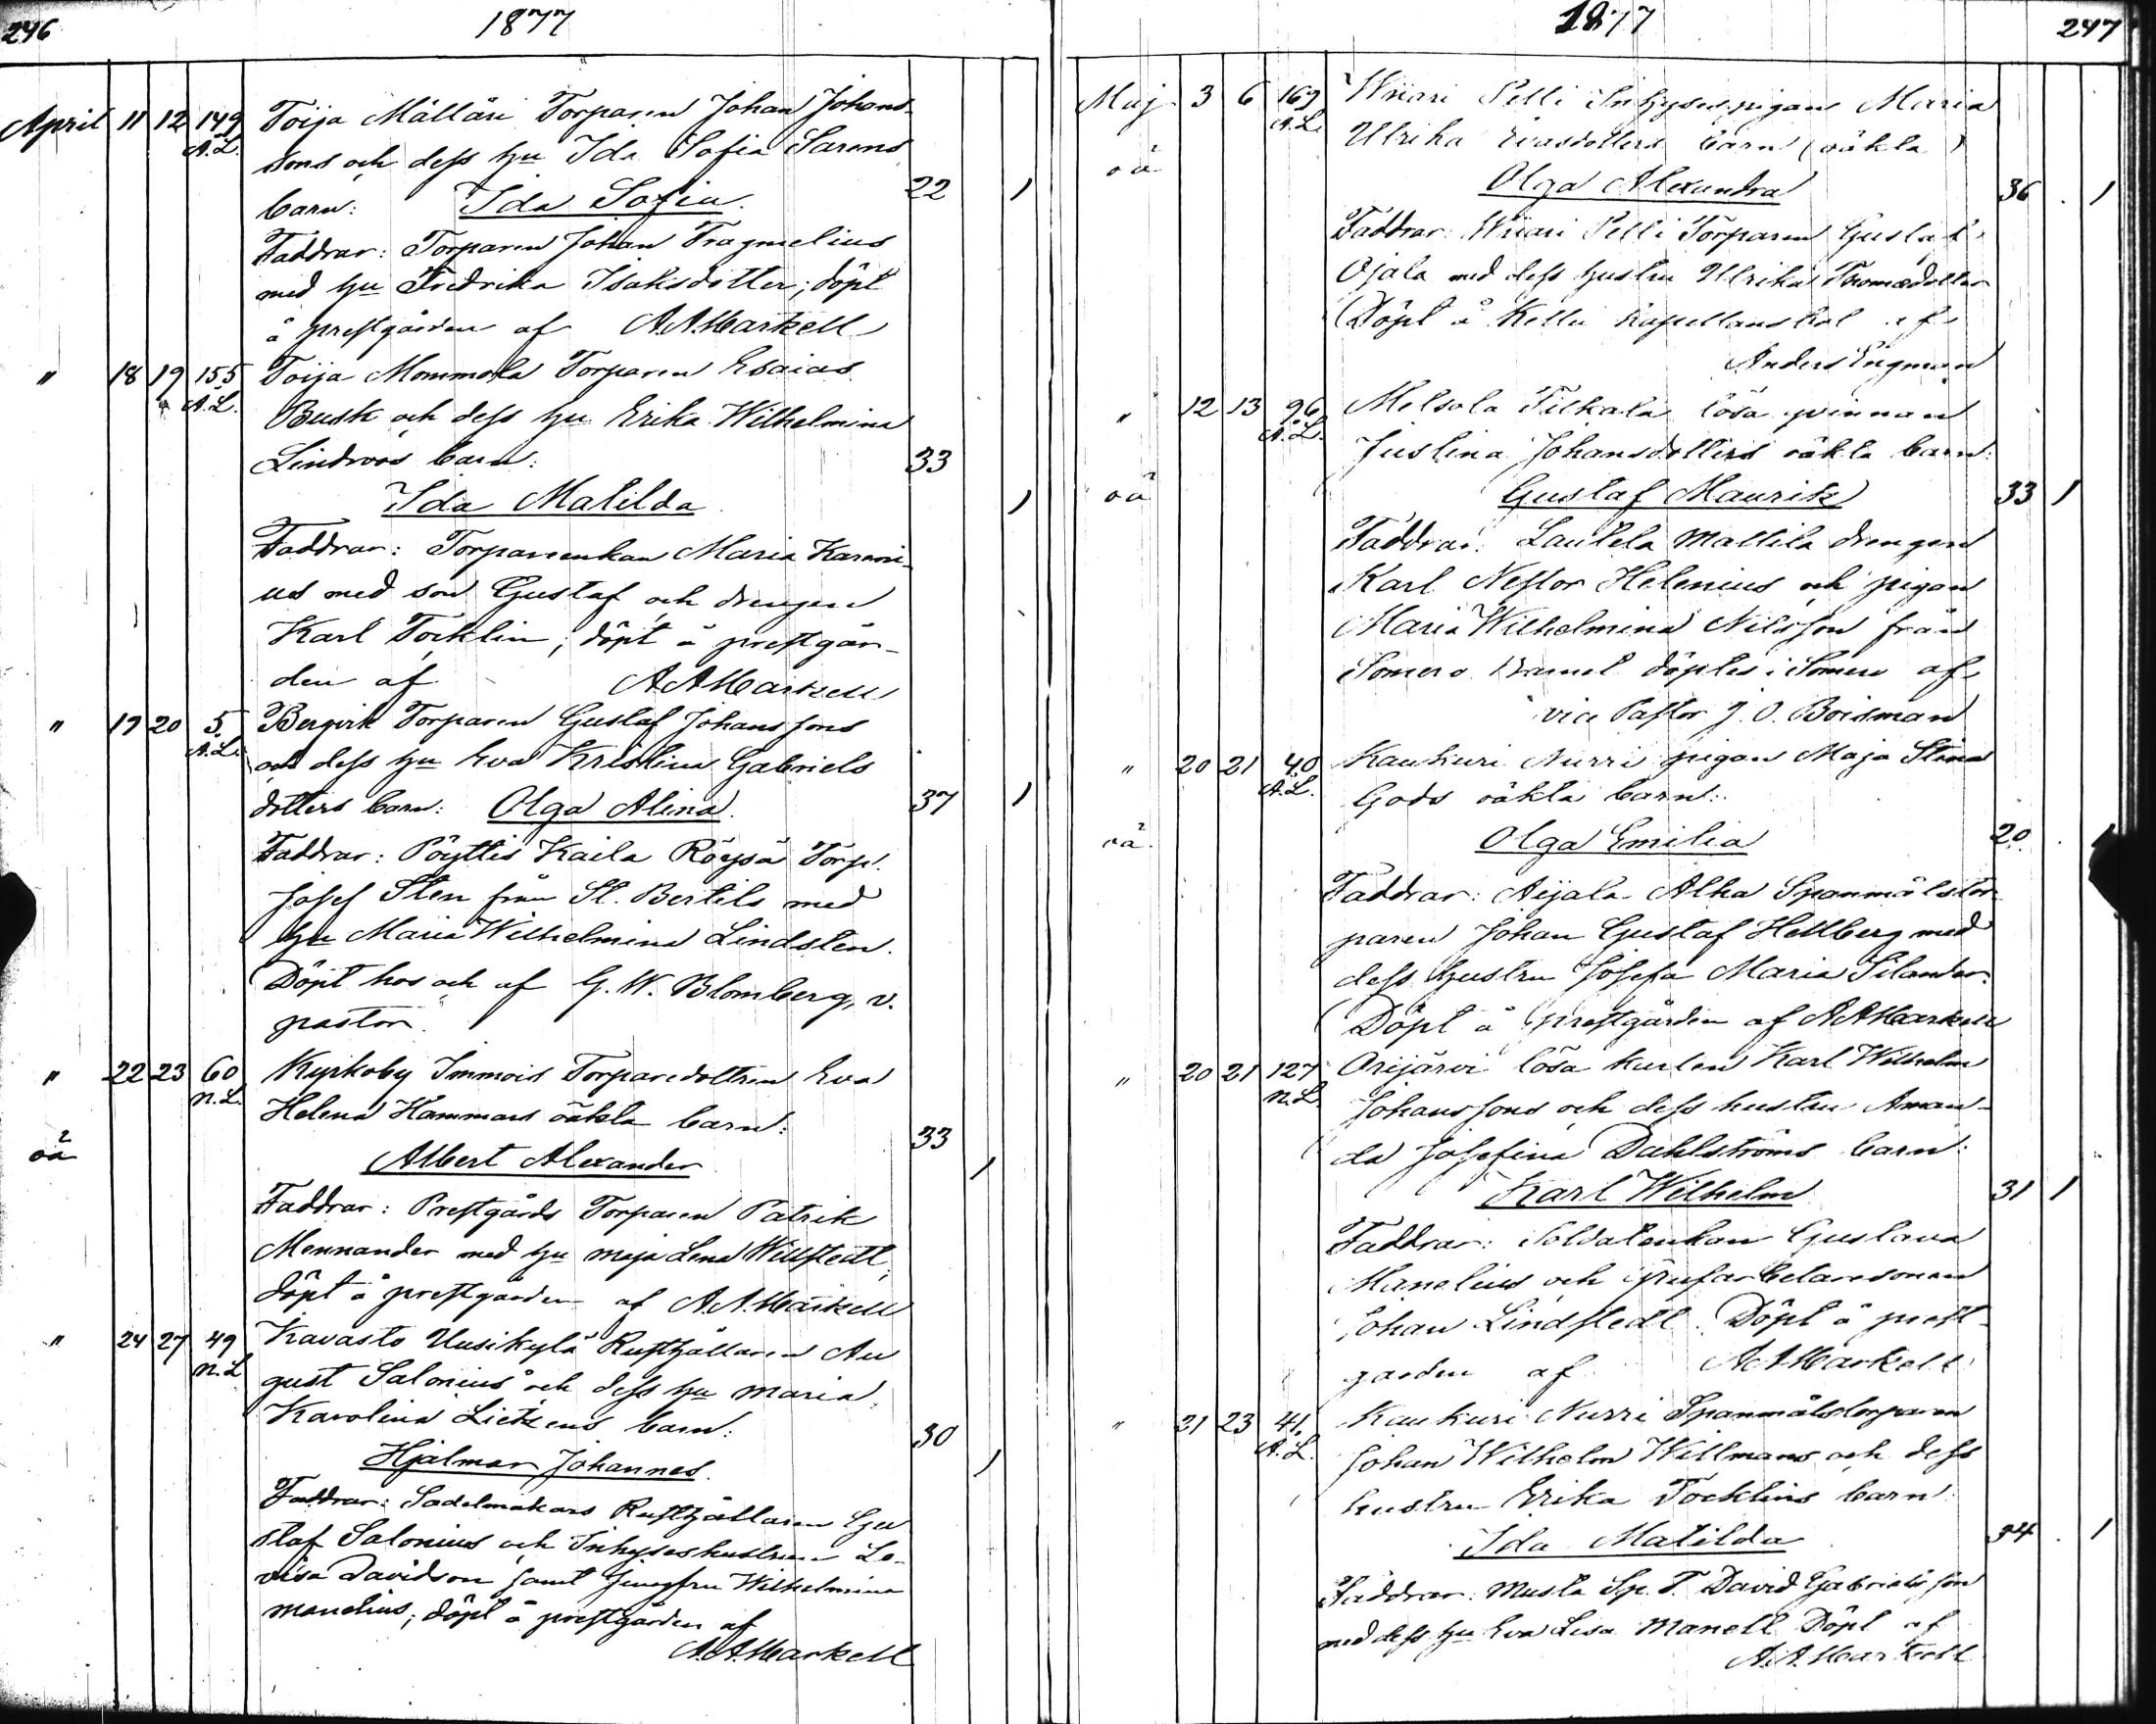 246
1877
April 11 12 149 Toija Mälläri Torparen Johan Johans-
A.L. sons och dess hu Ida Sofia Sarens
barn: Ida Sofia. 22 1
Faddrar: Torparen Johan Fragmelius
med hu Fredrika Isaksdotter; döpt
å prestgården af A.A.Markell
" 18 19 155 Toija Mommola Torparen Esaias
A.L. Busk och dess hu Erika Wilhelmina
Lindroos barn: 33
Ida Matilda 1
Faddrar: Torpareenkan Maria Karmi-
us med son Gustaf och drengen
Karl Tocklin; döpt å prestgår-
den af A.A.Markell
" 19 20 5 Bergvik Torparen Gustaf Johanssons
A.L. och dess hu Eva Kristina Gabriels
dotters barn: Olga Alina. 37 1
Faddrar: Pöyttis Kaila Röysä Torp.
Josef Sten från St. Bertils med
hu Maria Wilhelmina Lindsten.
Döpt hos och af G. W. Blomberg, v.
pastor.
" 22 23 60 Kyrkoby Immois Torparedottren Eva
N.L. Helena Hammars oäkta barn:
oä 33
Albert Alexander 1
Faddrar: Prestgårds Torparen Patrik
Mennander med hu Maja Lena Willstedt;
döpt å prestgården af A.A.Markell
" 24 27 49 Kavasto Uusikylä Rusthållaren Au
N.L gust Salonius och dess hu Maria
Karolina Lietzens barn: 30
Hjalmar Johannes. 1
Faddrar: Sadelmakars Rusthållaren Gu
staf Salonius och Inhyseshustrun Lo-
visa Davidson samt Jungfru Wilhelmina
Manelius; döpt å prestgården af
A.A.Markell
1877
247
Maj 3 6 169 Wiiari Pelli Inhysespigans Maria
A.L. Ulrika Evasdotters barn (oäkta)
oä Olga Alexandra 36 1
Faddrar: Wiiari Pelli Torparen Gustaf
Ojala med dess hustru Ulrika Thomædotter
Döpt å Kellu kapellansbol af
Anders Engman
" 12 13 96 Melsola Tilkala lösa qvinnan
A.L. Justina Johansdotters oäkta barn:
oä Gustaf Maurik 33 1
Faddrar: Lautela Mattila drengen
Karl Nestor Helenius och pigan
Maria Wilhelmina Nilsson från
Somero. Barnet döptes i Somero af
vice Pastor J. O. Boisman
" 20 21 40 Kaukuri Nurri pigan Maja Stina
A.L. Gods oäkta barn:
oä. Olga Emilia 20. 1
Faddrar: Aijala Alha Spanmålstor
paren Johan Gustaf Hellberg med
dess hustru Josefa Maria Silander.
Döpt å prestgården af A.A.Markell
" 20 21 127 Orijärvi lösa karlen Karl Wilhelm
N.L. Johanssons och dess hustru Aman-
da Josefina Dahlströms barn:
Karl Wilhelm 31 1
Faddrar: Soldatenkan Gustava
Manelius och grufarbetaresonen
Johan Lindstedt. Döpt å prest-
gården af A.A.Markell
" 21 23 41. Kaukuri Nurri Spanmålstorparen
A.L. Johan Wilhelm Willmans och dess
hustru Erika Tocklins barn:
Ida Matilda 34 1
Faddrar: Musta Sp. T. David Gabrielsson
med dess hu Eva Lisa Manell. Döpt af
A.A.Markell